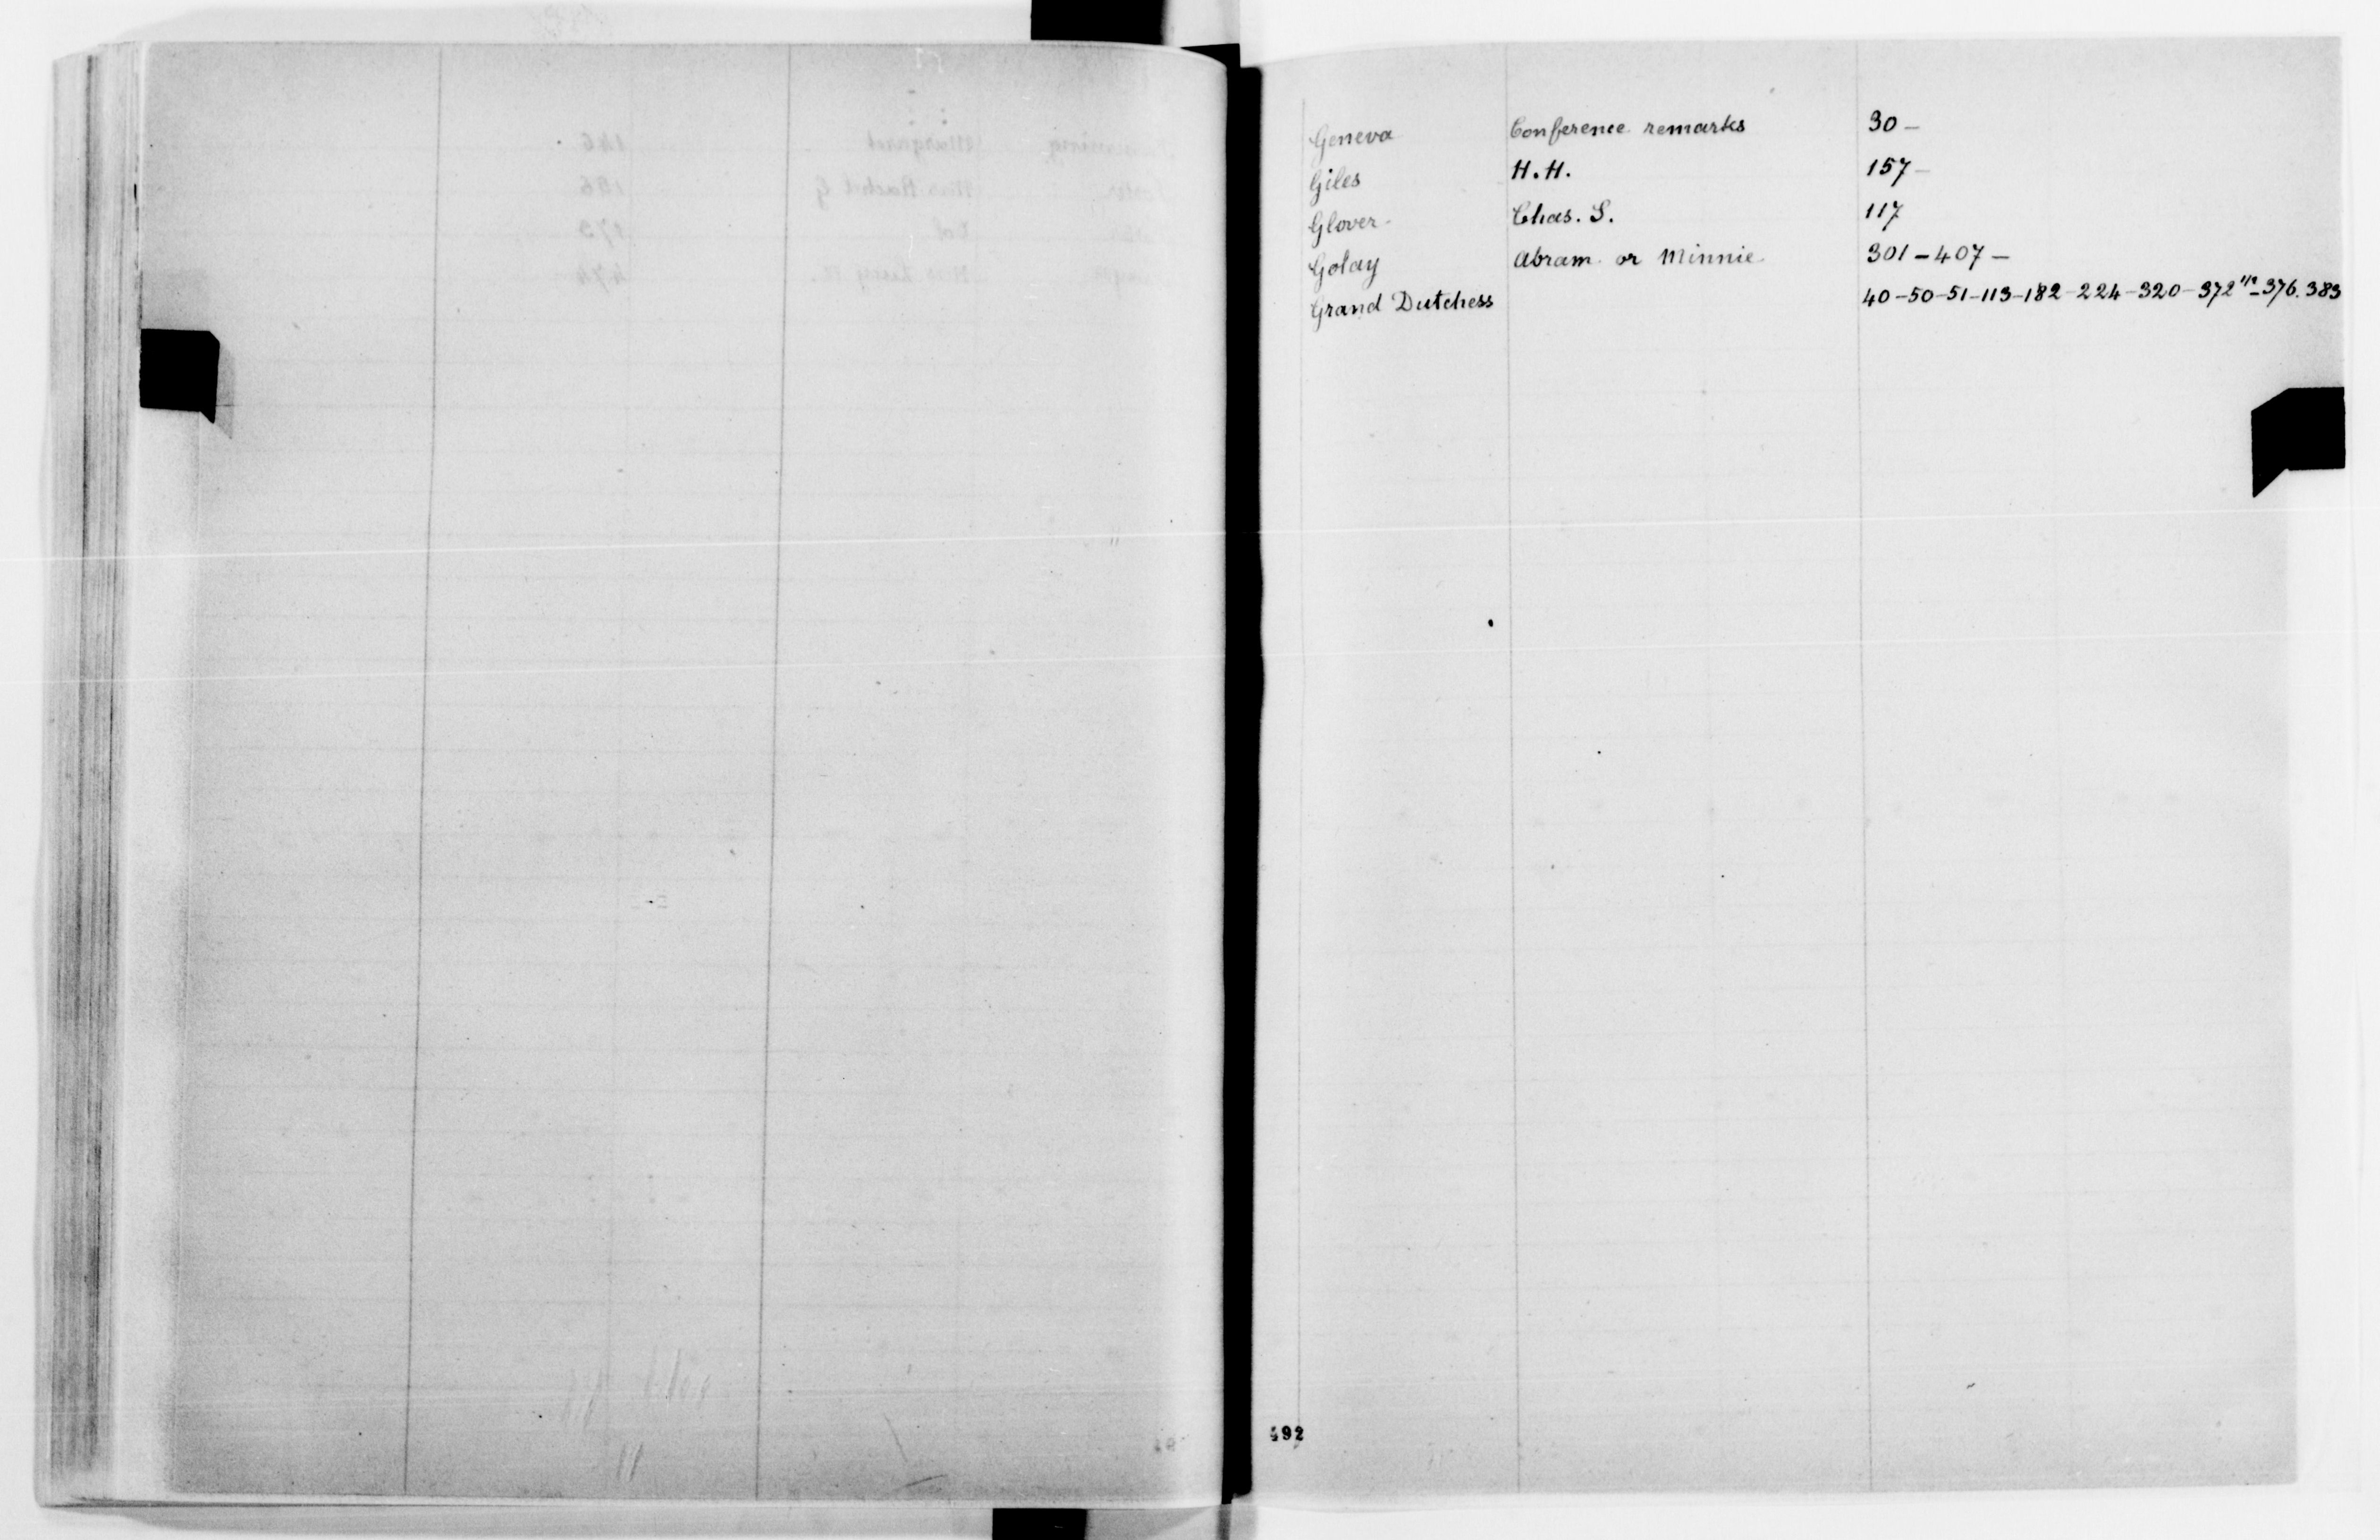 Geneva Conference remarks 30 –
Giles H. H. 157 –
Glover Chas. S. 117
Golay Abram or Minnie 301 – 407 –
Grand Dutchess 40 – 50 – 51 – 113 – 182 – 224 – 320 – 372 – 376. 383
492